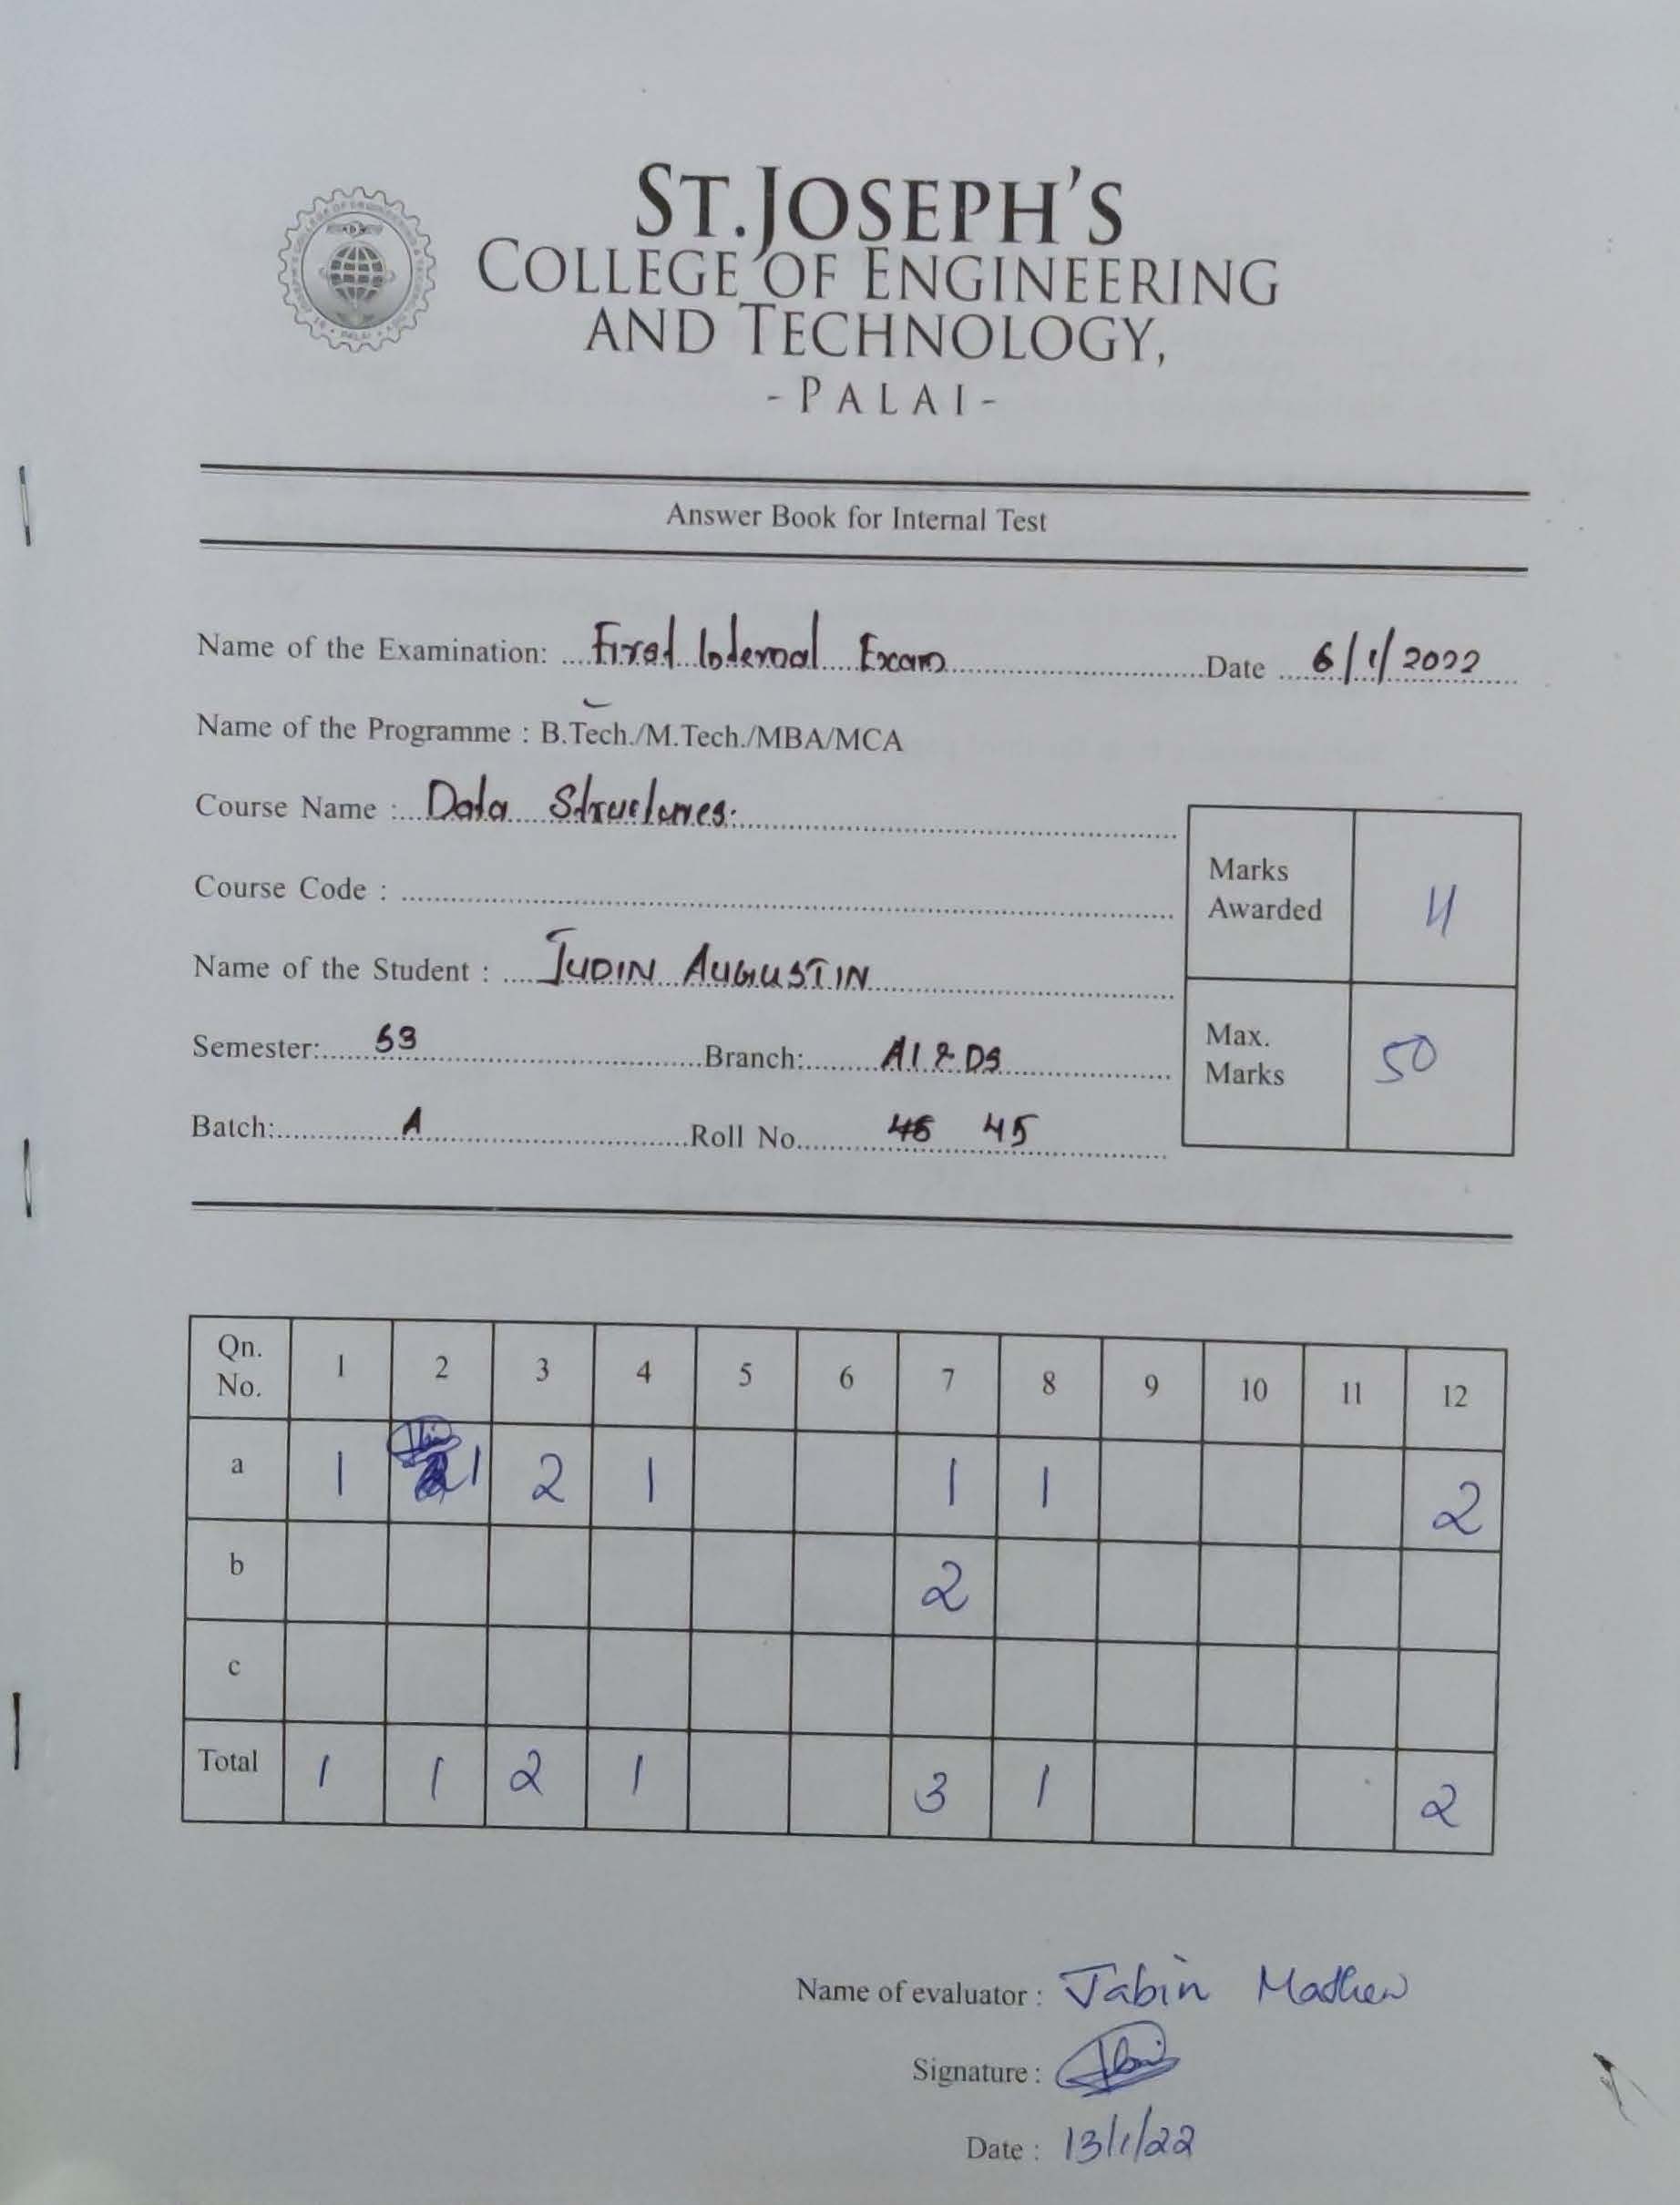 ST.JOSEPH'S
COLLEGE OF ENGINEERING
AND TECHNOLOGY,
- PALAI -
Answer Book for Internal Test
Name of the Examination: First Internal Exam Date 6/1/2022
Name of the Programme : B.Tech./M.Tech./MBA/MCA
Course Name : Data Structures.
Course Code :
Name of the Student : JUDIN AUGUSTIN
Semester: S3 Branch: AI & DS
Batch: A Roll No. 46 45
Marks Awarded 11
Max. Marks 50
Qn. No. 1 2 3 4 5 6 7 8 9 10 11 12
a 1 1 2 1 1 1 2
b 2
c
Total 1 1 2 1 3 1 2
Name of evaluator : Jabin Mathew
Signature :
Date : 13/1/22